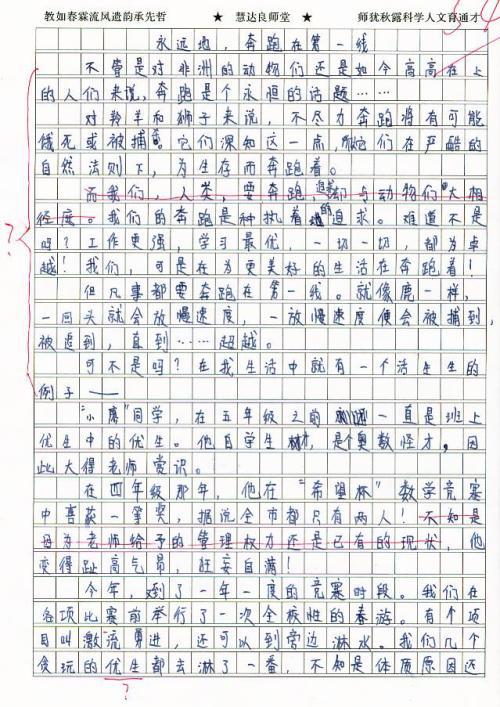 教如春霖流风遗韵承先哲 ★ 慧达良师堂 ★ 师犹秋露科学人文育通才
永远地，奔跑在第一线
不管是对非洲的动物们还是如今高高在上
的人们来说，奔跑是个永恒的话题……
对羚羊和狮子来说，不尽力奔跑将有可能
饿死或被捕。它们深知这一点，它们在严酷的
自然法则下，为生存而奔跑着。
而我们，人类，要奔跑，我们与动物们"大相
径庭。我们的奔跑是种执着的追求。难道不是
吗？工作更强，学习最优，一切一切，都为卓
越！我们，可是在为更美好的生活在奔跑着！
但凡事都要奔跑在第一线。就像鹿一样，
一回头就会放慢速度，一放慢速度便会被捕到，
被追到，直到……超越。
可不是吗？在我生活中就有一个活生生的
例子——
"小唐"同学，在五年级之前一直是班上
优生中的优生。他自学生材，是个奥数怪才。因
此大得老师赏识。
在四年级那年，他在"希望杯"数学竞赛
中喜获一等奖，据说全市都只有两人！不知是
因为老师给予的管理权力还是已有的现状，他
变得趾高气昂，狂妄自满！
今年，到了一年一度的竞赛时段。我们在
各项比赛前举行了一次全校性的春游。有个项
目叫激流勇进，还可以到旁边淋水。我们几个
贪玩的优生都去淋了一番，不知是体质原因还
？
？